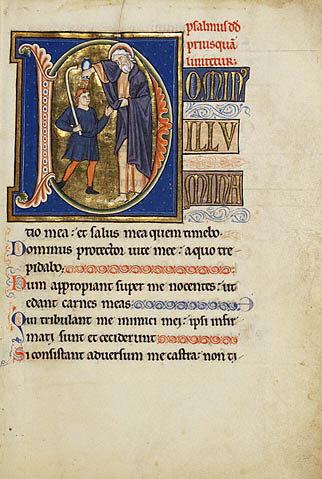 psalmus dd
priusquā
liniretur
DOMIN'
ILLV
MINA
tio mea: et salus mea quem timebo.
Dominus protector uite mee: a quo tre
pidabo.
Dum appropiant super me nocentes: ut
edant carnes meas.
Qui tribulant me inimici mei: ipsi infir
mati sunt et ceciderunt.
Si consistant aduersum me castra: non ti